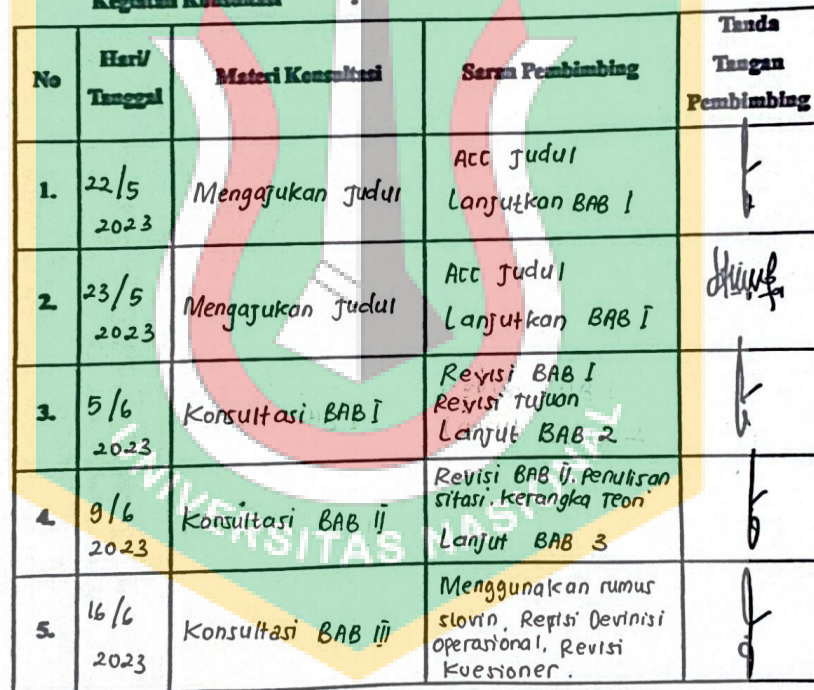 Kegiatan Konsultasi :
No
Hari/
Tanggal
Materi Konsultasi
Saran Pembimbing
Tanda
Tangan
Pembimbing
1.
22/5
2023
Mengajukan Judul
Acc Judul
Lanjutkan BAB I
2.
23/5
2023
Mengajukan Judul
Acc Judul
Lanjutkan BAB I
3.
5/6
2023
Konsultasi BAB I
Revisi BAB I
Revisi tujuan
Lanjut BAB 2
4.
9/6
2023
Konsultasi BAB II
Revisi BAB II. Penulisan
sitasi. Kerangka Teori
Lanjut BAB 3
5.
16/6
2023
Konsultasi BAB III
Menggunakan rumus
slovin, Refisi Devinisi
operasional, Revisi
Kuesioner.
UNIVERSITAS NASIONAL